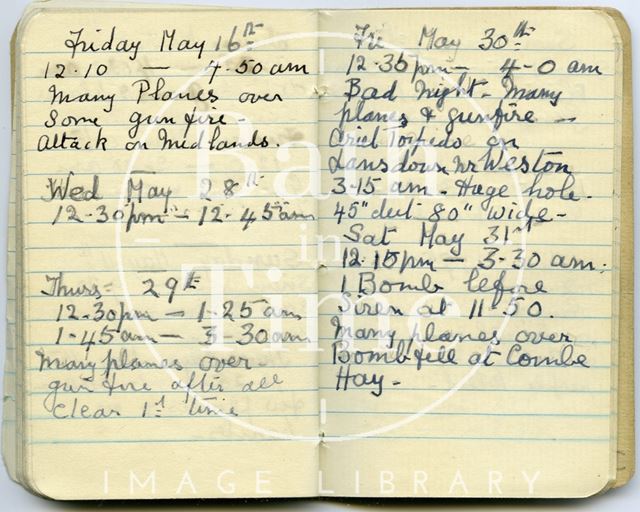 Friday May 16th
12.10 — 4.50 am
Many Planes over
Some gun fire -
Attack on Midlands.
Wed May 28th
12-30pm - 12-45am
Thurs 29th
12-30pm — 1-25am
1-45am — 3-30am
Many planes over -
gun fire after all
clear 1st time
Fri May 30th
12.35pm — 4-0 am
Bad Night - Many
planes & gunfire -
Ariel Torpido on
Lansdown Nr Weston
3-15 am - Huge hole -
45" deep 80" wide -
Sat May 31st
12.15pm — 3-30 am.
1 Bomb before
Siren at 11-50.
Many planes over
Bomb fell at Combe
Hay -
Bath
in
Time
IMAGE LIBRARY